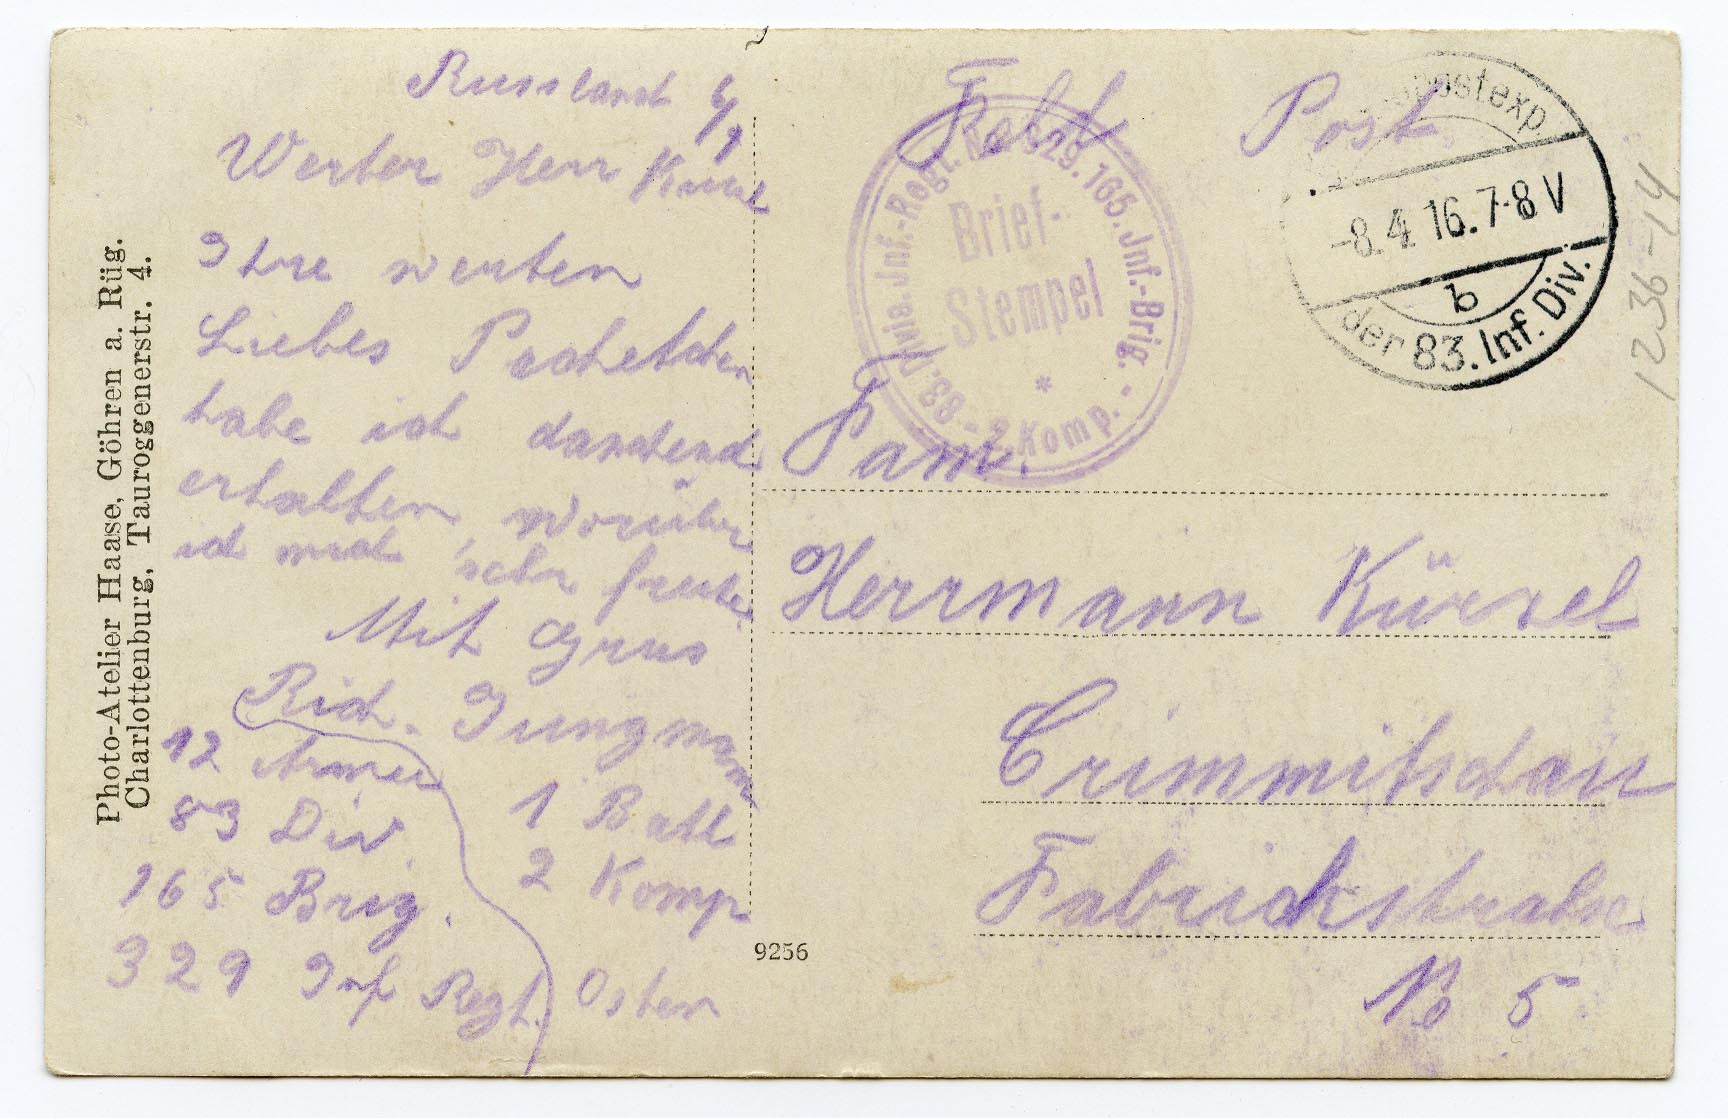 Russland 6/9
Werter Herr
Ihre werten
Liebes Packetchen
habe ich dankend
erhalten, worüber
ich mich sehr freute.
Mit Grus
Rich. Jungmann
12 Armee
83 Div.
165 Brig.
329 Inf Regt.
1 Batl
2 Komp
Osten
Feld Post
Fam.
Herrmann Kürzel
Crimmitschau
Fabrickstraße
No 5
Inf.-Regt. No 329. 165. Inf.-Brig. - 83. Divis.
2 Komp.
Brief-
Stempel
*
postexp.
-8.4.16.7-8V
b
der 83. Inf. Div.
1236-14
9256
Photo-Atelier Haase, Göhren a. Rüg.
Charlottenburg, Tauroggenerstr. 4.